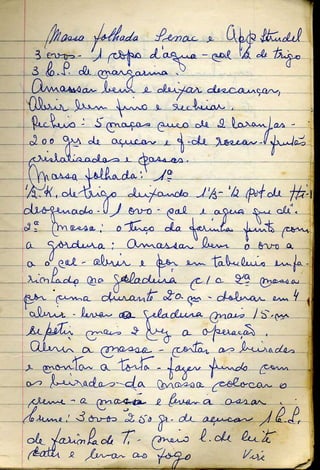 Massa folhada Senac e App Strudel
3 ovos - 1 copo d'água - sal ½ de trigo
3 C.S. de margarina.
Amassar bem e deixar descançar,
Abrir bem fino e rechear.
Recheio: 5 maças suco de 2 laranjas -
200 grs de açucar e f. de roscar - frutas
cristalisadas e passas.
Massa folhada: 1º
½ K. de trigo deixando 1/3 - ½ pct de
drogenado. 1 ovo - sal e agua que dê.
2ª Massa: o terço da farinha junto com
a gordura: Amassar bem o ovo a
a o sal - abrir e por em tabuleiro enfa
rinhado na geladeira c/a 2ª massa
por cima durante 20 m - dobrar em 4
abrir - levar a geladeira mais 15 m
repetir mais 2 vez a operação
Abrir a massa - cortar as beiradas
e montar a torta - fazer fundo com
as beiradas da massa colocar o
creme - a massa e levar a assar.
Creme: 3 ovos 250 gr. de açucar 1 C.S.
de farinha de T. - meio l. de leite
bater e levar ao fogo